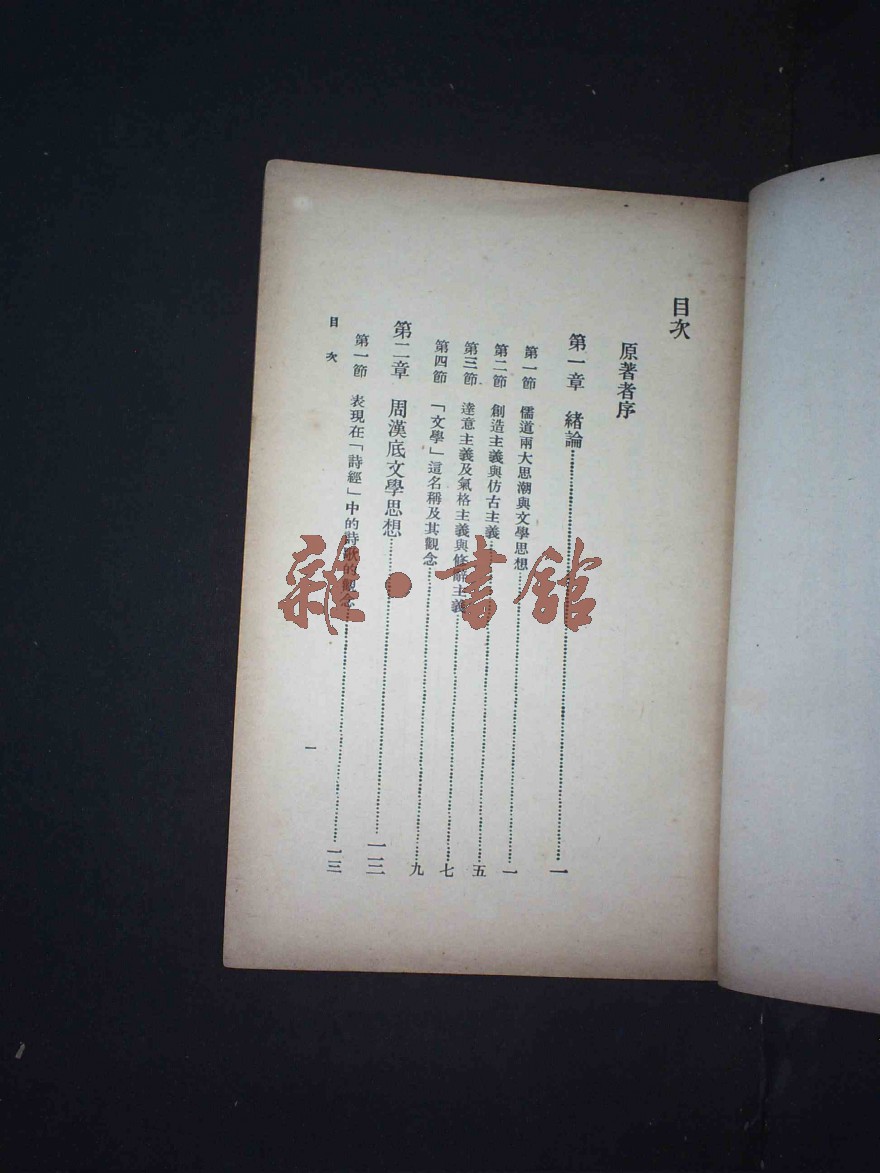 目次
原著者序
第一章　緒論……一
第一節　儒道兩大思潮與文學思想……一
第二節　創造主義與仿古主義……五
第三節　達意主義及氣格主義與修辭主義……七
第四節　「文學」這名稱及其觀念……九
第二章　周漢底文學思想……一三
第一節　表現在「詩經」中的詩歌的觀念……一三
目次
一
雜·書館